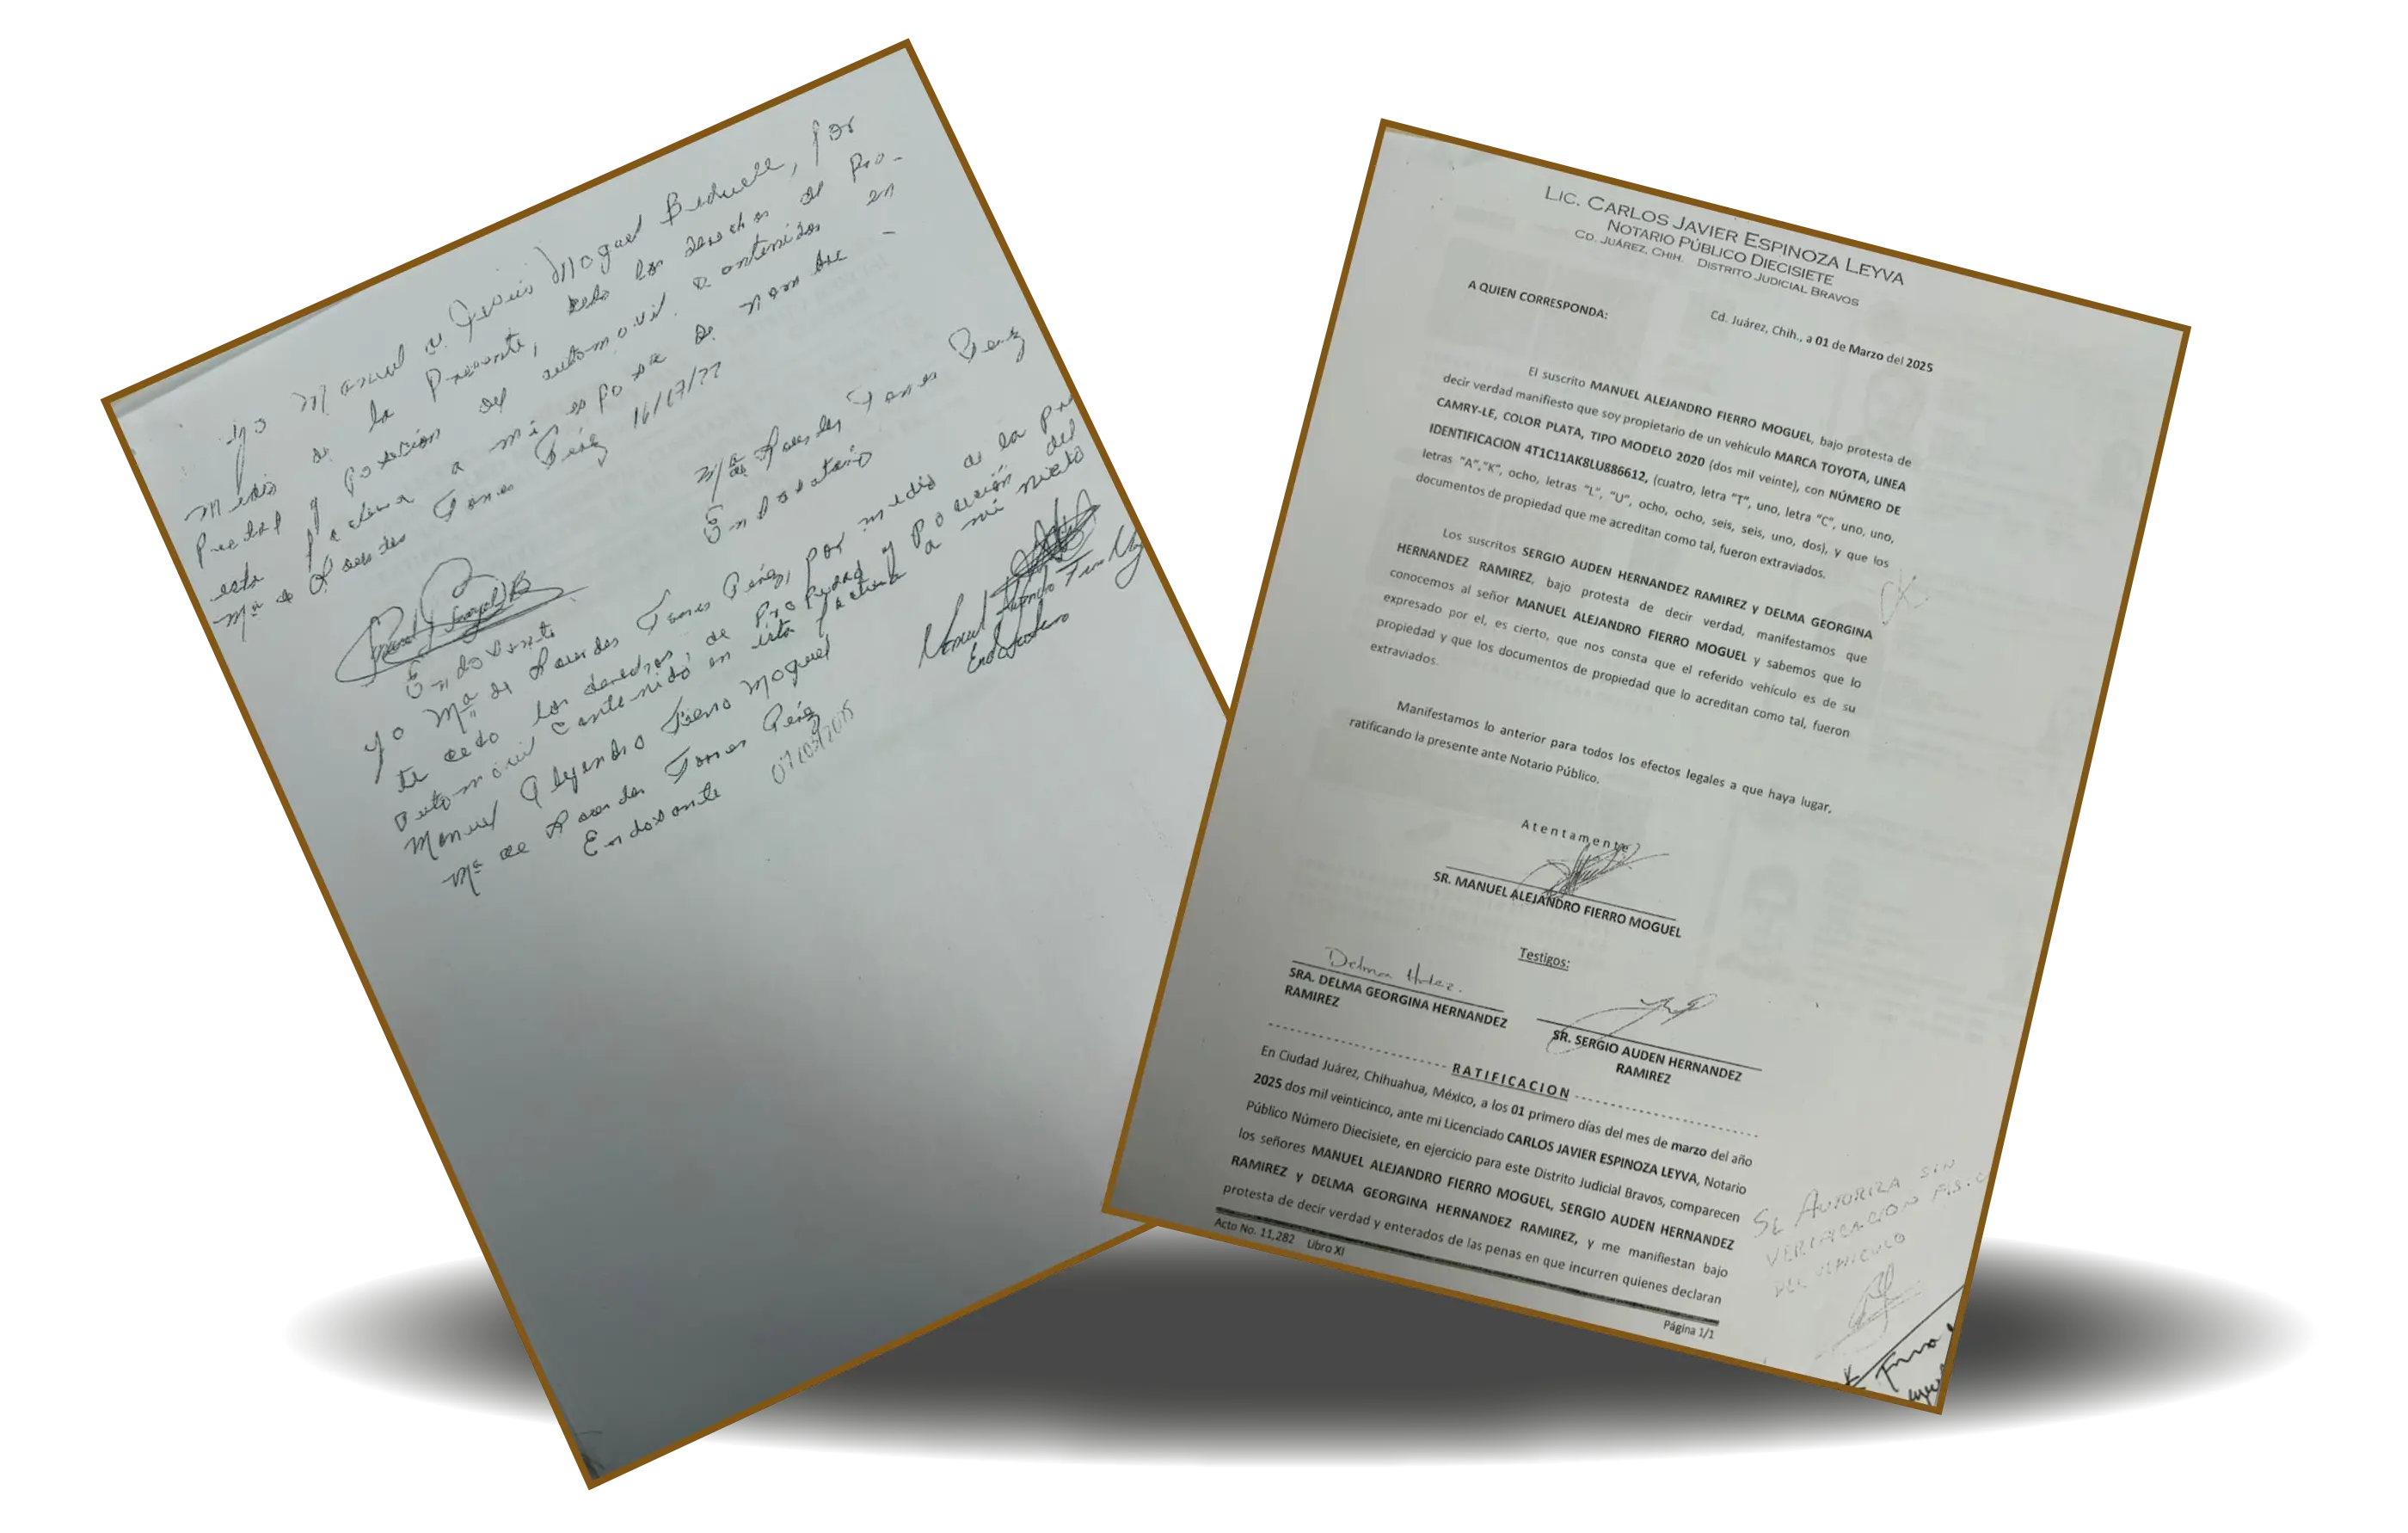 Yo Manuel J. Jesús Moguel Beduele, por
medio de la presente, cedo los derechos de pro-
piedad y posesión del automovil contenidos en
esta factura a mi esposa de nombre -
Mª de Lourdes Torres Peréz 16/17/22
Endosante
Mª de Lourdes Torres Perez
Endosatario
yo Mª de Lourdes Torres Peréz, por medio de la pre
te cedo los derechos, de propiedad y poseción del
automovil contenido en ésta factura a mi nieto
Manuel Alejandro Fierro Moguel
Mª de Lourdes Torres Peréz
Endosante
Manuel Alejandro Fierro
Endosatario
LIC. CARLOS JAVIER ESPINOZA LEYVA
NOTARIO PÚBLICO DIECISIETE
CD. JUÁREZ, CHIH. DISTRITO JUDICIAL BRAVOS
Cd. Juárez, Chih., a 01 de Marzo del 2025
A QUIEN CORRESPONDA:
El suscrito MANUEL ALEJANDRO FIERRO MOGUEL, bajo protesta de
decir verdad manifiesto que soy propietario de un vehículo MARCA TOYOTA, LINEA
CAMRY-LE, COLOR PLATA, TIPO MODELO 2020 (dos mil veinte), con NÚMERO DE
IDENTIFICACION 4T1C11AK8LU886612, (cuatro, letra "T", uno, letra "C", uno, uno,
letras "A","K", ocho, letras "L", "U", ocho, ocho, seis, seis, uno, dos), y que los
documentos de propiedad que me acreditan como tal, fueron extraviados.
Los suscritos SERGIO AUDEN HERNANDEZ RAMIREZ y DELMA GEORGINA
HERNANDEZ RAMIREZ, bajo protesta de decir verdad, manifestamos que
conocemos al señor MANUEL ALEJANDRO FIERRO MOGUEL y sabemos que lo
expresado por el, es cierto, que nos consta que el referido vehículo es de su
propiedad y que los documentos de propiedad que lo acreditan como tal, fueron
extraviados.
Manifestamos lo anterior para todos los efectos legales a que haya lugar,
ratificando la presente ante Notario Público.
Atentamente
SR. MANUEL ALEJANDRO FIERRO MOGUEL
Testigos:
Delma Hdez.
SRA. DELMA GEORGINA HERNANDEZ
RAMIREZ
SR. SERGIO AUDEN HERNANDEZ
RAMIREZ
RATIFICACION
En Ciudad Juárez, Chihuahua, México, a los 01 primero días del mes de marzo del año
2025 dos mil veinticinco, ante mi Licenciado CARLOS JAVIER ESPINOZA LEYVA, Notario
Público Número Diecisiete, en ejercicio para este Distrito Judicial Bravos, comparecen
los señores MANUEL ALEJANDRO FIERRO MOGUEL, SERGIO AUDEN HERNANDEZ
RAMIREZ y DELMA GEORGINA HERNANDEZ RAMIREZ, y me manifiestan bajo
protesta de decir verdad y enterados de las penas en que incurren quienes declaran
Acto No. 11,282 Libro XI
Página 1/1
SE AUTORIZA SIN
VERIFICACION FISICA
DEL VEHICULO